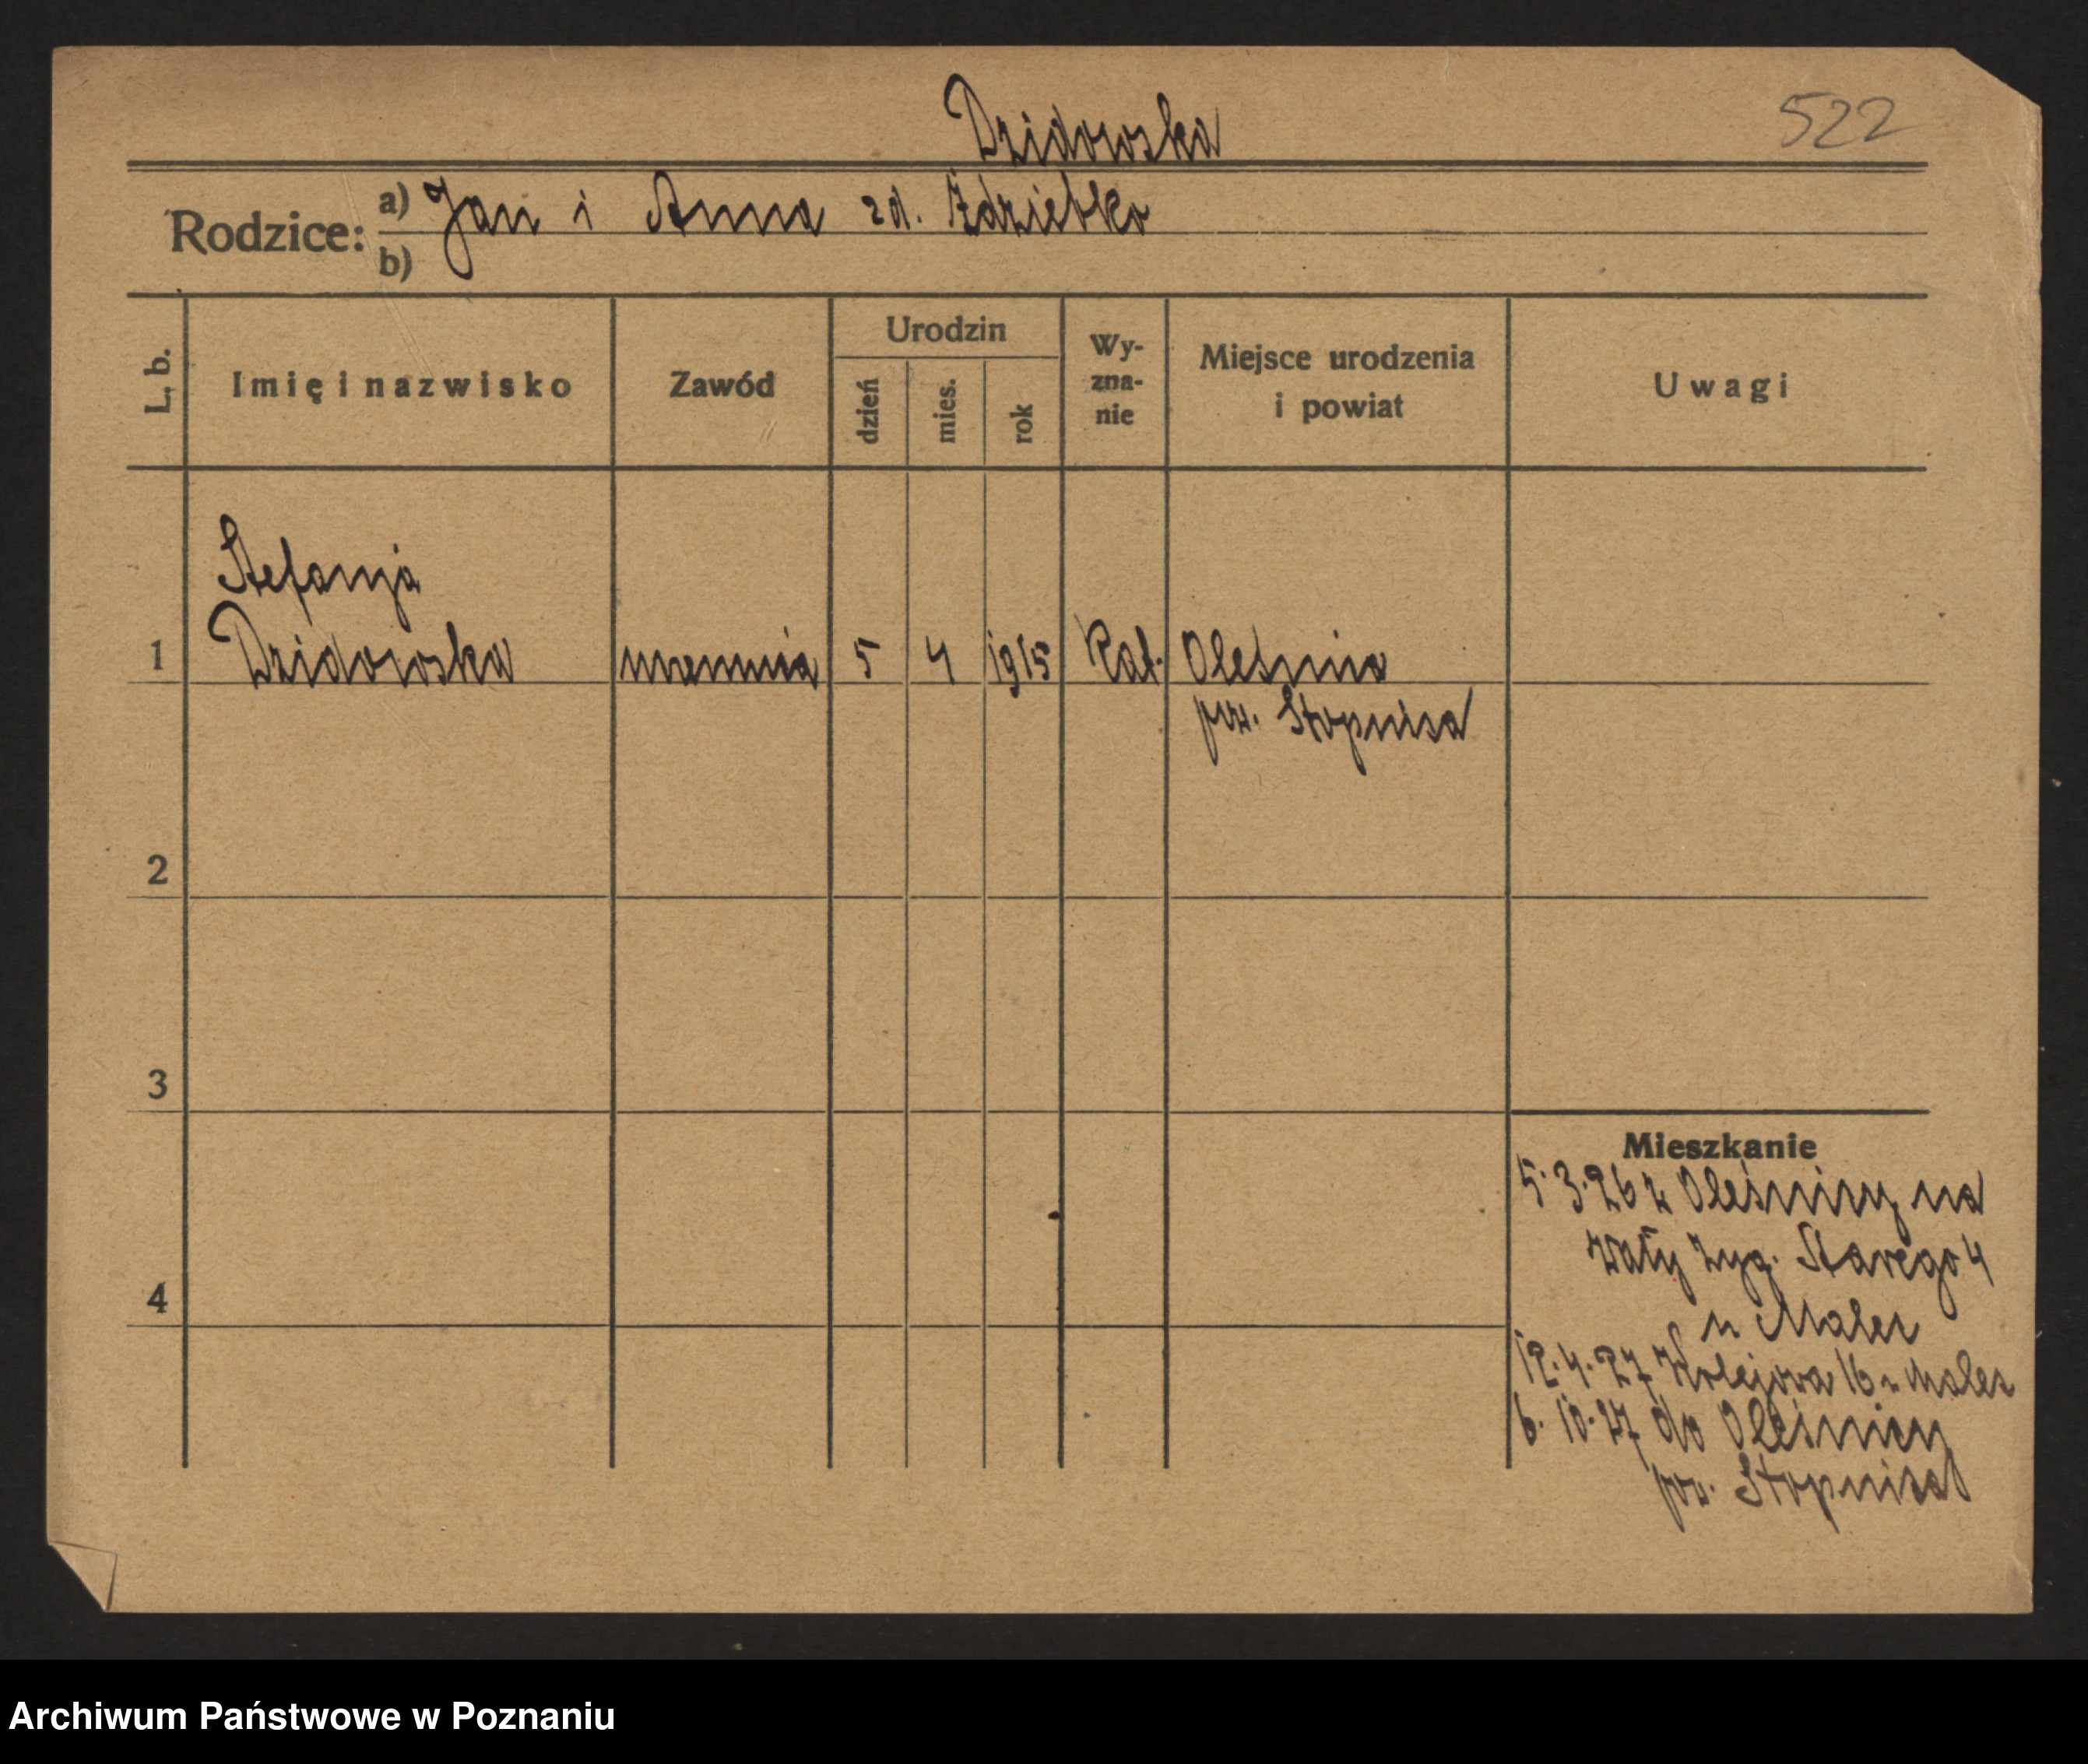 Dzidowska
522
Rodzice:
a) Jan i Anna zd. Ździebko
b)
L. b.
Imię i nazwisko
Zawód
Urodzin
dzień
mies.
rok
Wy-
zna-
nie
Miejsce urodzenia
i powiat
Uwagi
Stefanja
1 Dzidowska uczennica 5 4 1915 Kat. Oleśnica
pow. Stopnica
2
3
4
Mieszkanie
5.3.26 z Oleśnicy na
Wały Zyg. Starego 4
u Malec
12.4.27 Kolejowa 16 u Malec
6.10.27 do Oleśnicy
pow. Stopnica
Archiwum Państwowe w Poznaniu